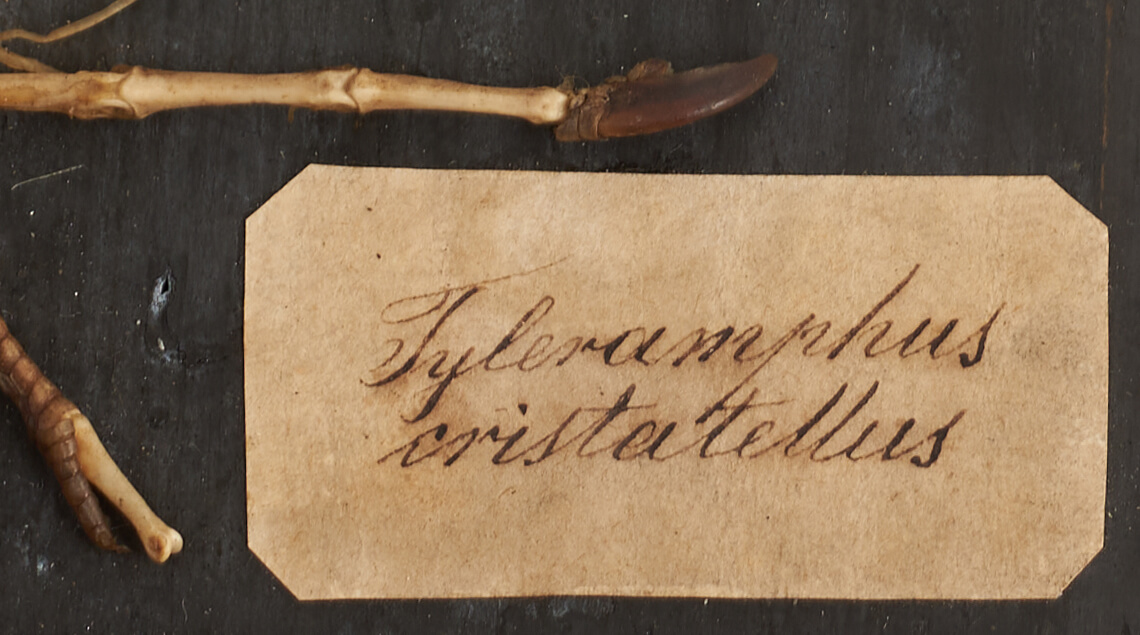 Tyleramphus
cristatellus